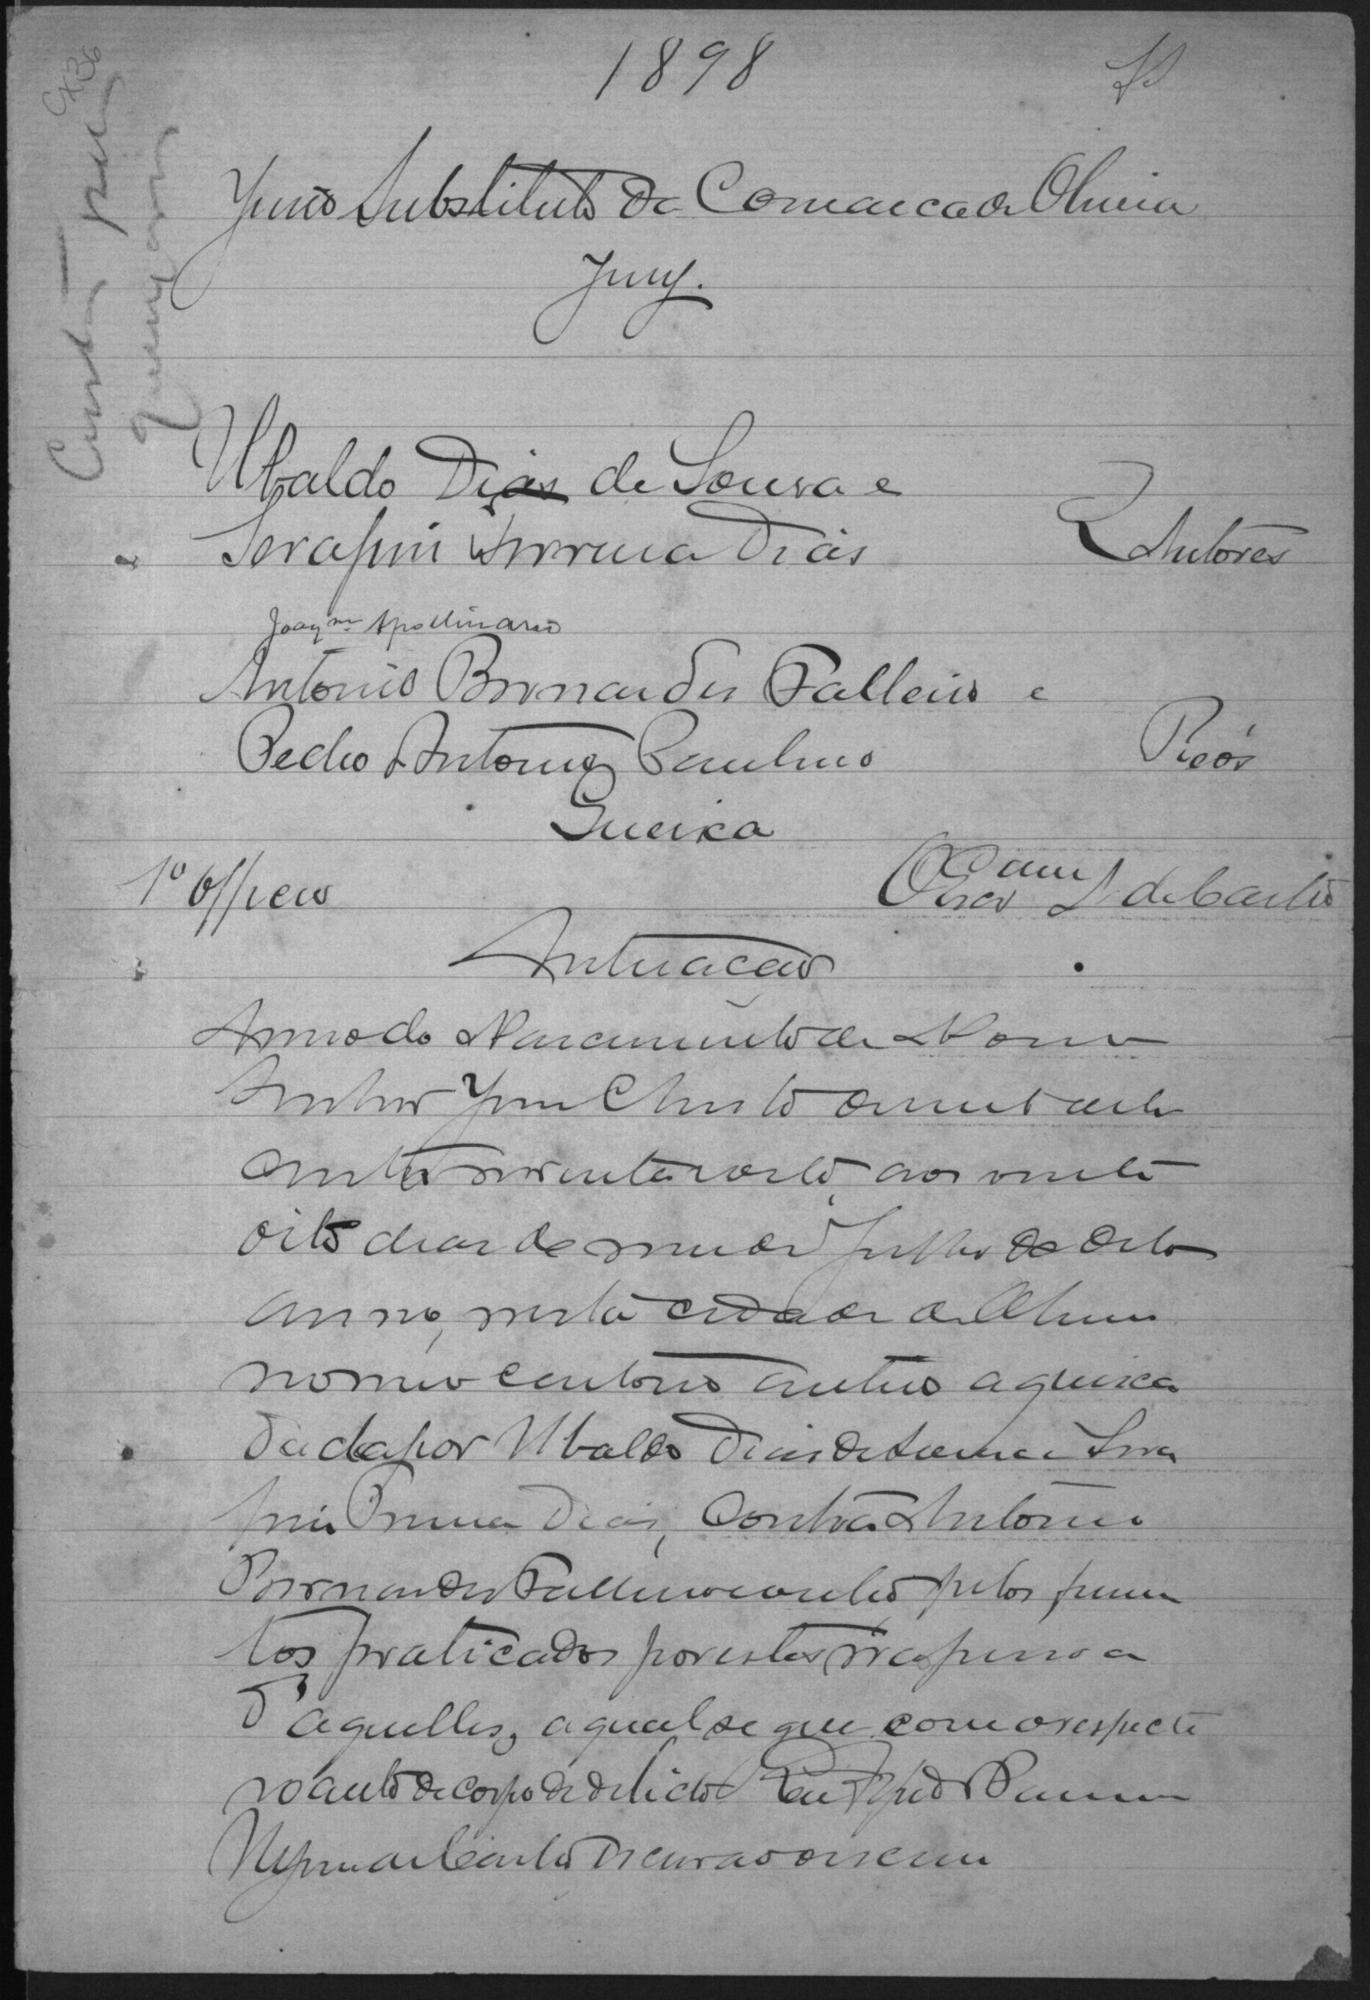 1898
Cx36
Juizo Substituto da Comarca de Oliveira
Jury.
Ubaldo Dias de Sousa e
Serafim Ferreira Dias
Autores
Joaqm Apollinario
Antonio Bernardes Falleiro e
Pedro Antonio Paulino
Réos
Queixa
1º Officio
de Castro
Autuacão
Anno do Nascimento de Nosso
Senhor Jesus Christo de mil oito
centos noventa e oito, aos vinte
oito dias do mez de Julho do dito
anno, nesta cidade de Oliveira
no meu cartorio autuo a queixa
dada por Ubaldo Dias de Sousa e Sera
fim Ferreira Dias, contra Antonio
Bernardes Falleiro e outro, pelos ferimen
tos praticados por estes na pessoa
d'aquelles, a qual segue com o respecti
vo auto de corpo de delicto Eu
de Castro escrivão o escrevi